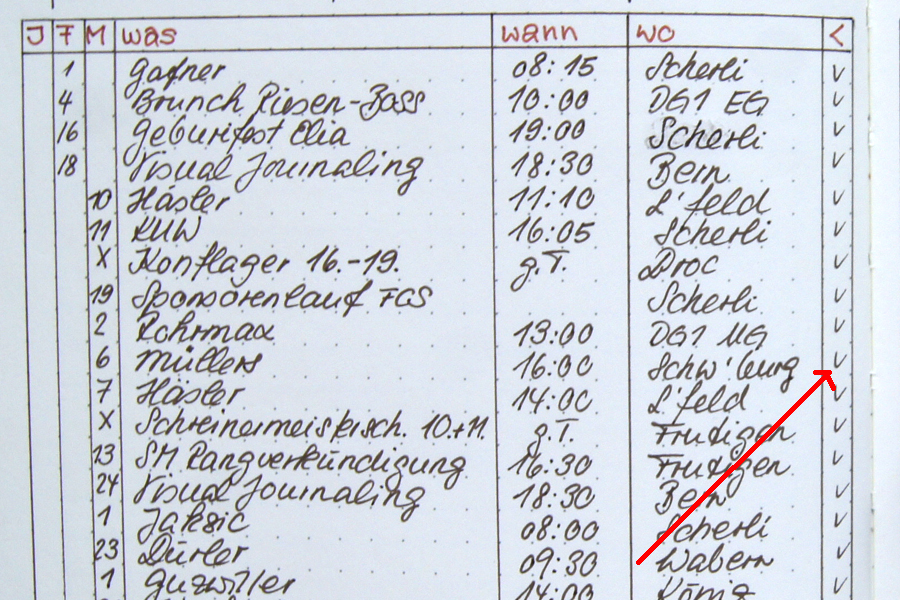 J F M was wann wo <
1 Gafner 08:15 Scherli v
4 Brunch Riesen-Boss 10:00 DG1 EG v
16 Geburifest Elia 19:00 Scherli v
18 Visual Journaling 18:30 Bern v
10 Häsler 11:10 L'feld v
11 KUW 16:05 Scherli v
X Konflager 16.-19. g.T. Broc v
19 Sponsorenlauf FGS Scherli v
2 Rohrmax 13:00 DG1 UG v
6 Müllers 16:00 Schw'burg v
7 Häsler 14:00 L'feld v
X Schreinermeistersch. 10.+11. g.T. Frutigen v
13 SM Rangverkündigung 16:30 Frutigen v
24 Visual Journaling 18:30 Bern v
1 Jaksic 08:00 Scherli v
23 Dürler 09:30 Wabern v
1 Gutwiller 14:00 Köniz v